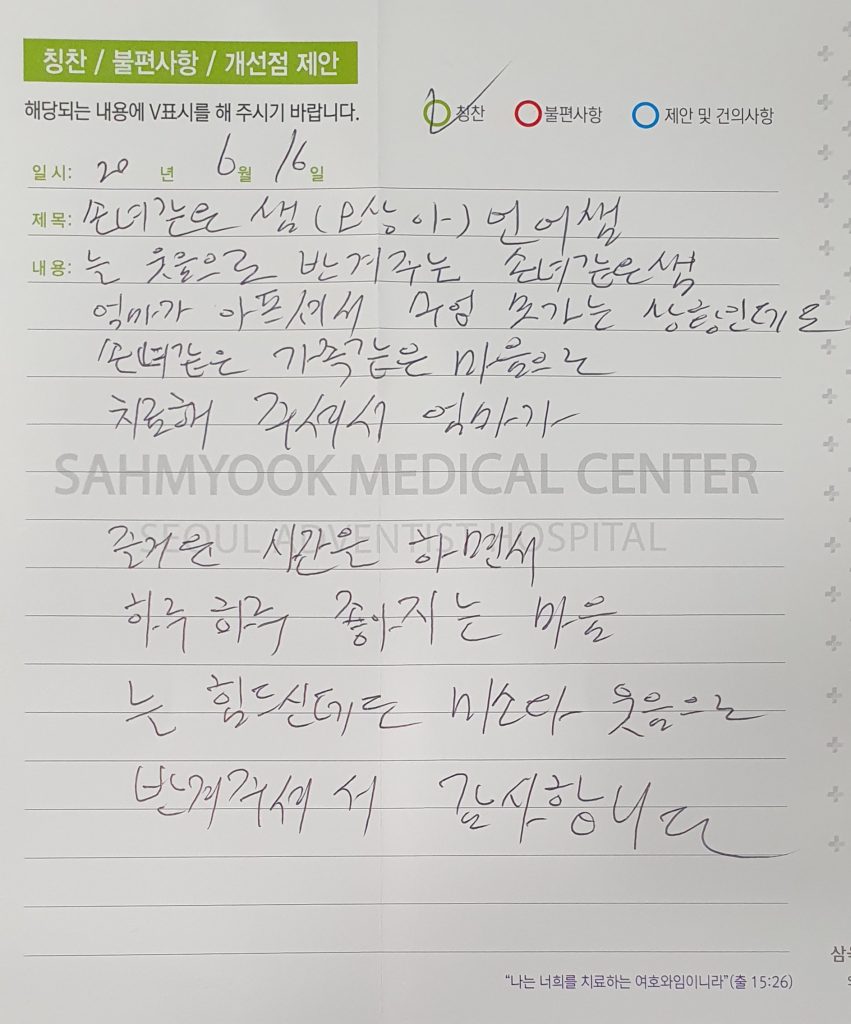 칭찬 / 불편사항 / 개선점 제안
해당되는 내용에 V표시를 해 주시기 바랍니다.
V 칭찬 불편사항 제안 및 건의사항
일시: 20 년 6월 16일
제목: 손녀같은 쌤 (오상아) 언어쌤
내용: 늘 웃음으로 반겨주는 손녀같은쌤
엄마가 아프셔서 수업 못가는 상황인데도
손녀같은 가족같은 마음으로
치료해 주셔서 엄마가
SAHMYOOK MEDICAL CENTER
SEOUL ADVENTIST HOSPITAL
즐거운 시간을 하면서
하루 하루 좋아지는 마음
늘 힘드신데도 미소다 웃음으로
반겨주셔서 감사합니다
"나는 너희를 치료하는 여호와임이니라"(출 15:26)